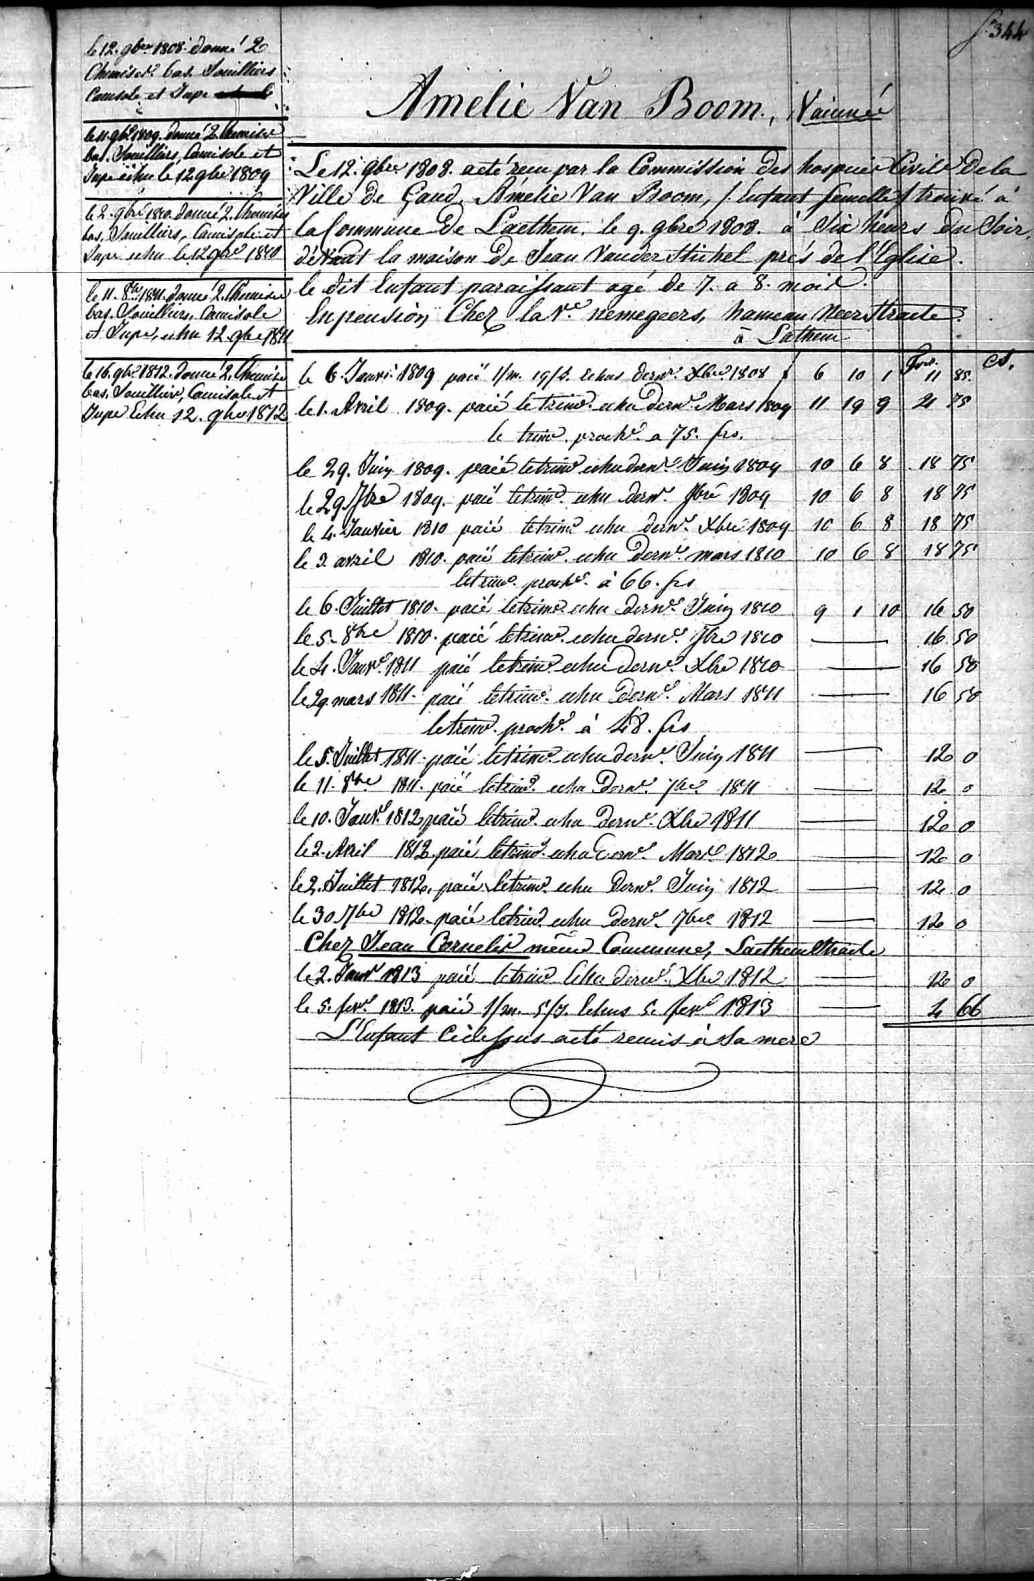 f. 344
le 12. 9bre 1808. donné 2
Chemises. bas. Souilliers
Camisole et Jupe
le 11. 9bre 1809. donné 2. Chemise
bas. Souilliers, Camisole et
Jupe echu le 12 9bre 1809
le 2. 9bre 1810. donné 2. Chemises
bas, Souilliers, Camisole et
Jupe echu le 12 9bre 1810
le 11. 8bre 1811. donné 2. Chemise
bas. Souilliers, Camisole
et Jupe, echu 12. 9bre 1811
le 16. 9bre 1812. donné 2. Chemise
bas. Souilliers, Camisole et
Jupe Echu 12. 9bre 1812
Amelie Van Boom., Vaccinée
Le 12. 9bre. 1808. acté reçu par la Commission des hospices Civils De la
Ville De Gand, Amelie Van Boom, /. Enfant femelle / trouvé à
la Commune De Laethem, le 9. 9bre 1808. à Six heurs Du Soir,
dévant la maison De Jean Vander Stichel prés de l'Eglise.
le dit Enfant paraissant agé de 7. a 8. mois.
En pension Chez la Ve. nemegeers, hameau Meerstraete.
à Lathem
frs. cs.
le 6. Janvr. 1809 paié 1/m. 19/J. Echus dernr. Xbre 1808 f 6 10 1 11 85
le 1. Avril 1809. paié le trimr. echu dernr. Mars 1809 11 19 9 21 75
le trimr. prochr. a 75. frs.
le 29. Juin 1809. paié le trimr echu dernr. Juin 1809 10 6 8 18 75
le 29 7bre 1809. paié le trimr. echu dernr. 7bre 1809 10 6 8 18 75
le 4. Janvier 1810 paié le trimr echu dernr. Xbre 1809 10 6 8 18 75
le 2 avril 1810. paié le trimr. echu dernr. mars 1810 10 6 8 18 75
le trimr. prochr. à 66. frs
le 6. Juillet 1810. paié le trimr echu dernr. Juin 1810 9 1 10 16 50
le 5. 8bre 1810. paié le trimr. echu dernr. 7bre 1810 —— 16 50
le 4. Janvr. 1811 paié le trimr echu dernr. Xbre 1810 —— 16 50
le 29 mars 1811. paié le trimr. echu dernr. Mars 1811 —— 16 50
le trimr prochr. à 48. frs
le 5. Juillet 1811. paié le trimr. echu dernr. Juin 1811 —— 12 0
le 11. 8bre 1811. paié le trimr. echu Dernr. 7bre 1811 —— 12 0
le 10. Janvr. 1812 paié le trimr. echu Dernr. Xbre 1811 —— 12 0
le 2. Avril 1812 paié le trimr. echu Dernr. Mars 1812 —— 12 0
le 2. Juillet 1812. paié le trimr. echu Dernr. Juin 1812 —— 12 0
le 30 7bre 1812. paié le trimr. echu dernr. 7bre 1812 —— 12 0
Chez Jean Cornelis même Commune, Laethemstraete
le 2. Janvr 1813 paié le trimr Echu dernr. Xbre 1812 —— 12 0
le 5. fevr. 1813. paié 1/m. 5/J. Echus 5. fevr 1813 —— 4 66
L'Enfant Cidessus acté remis à sa mere